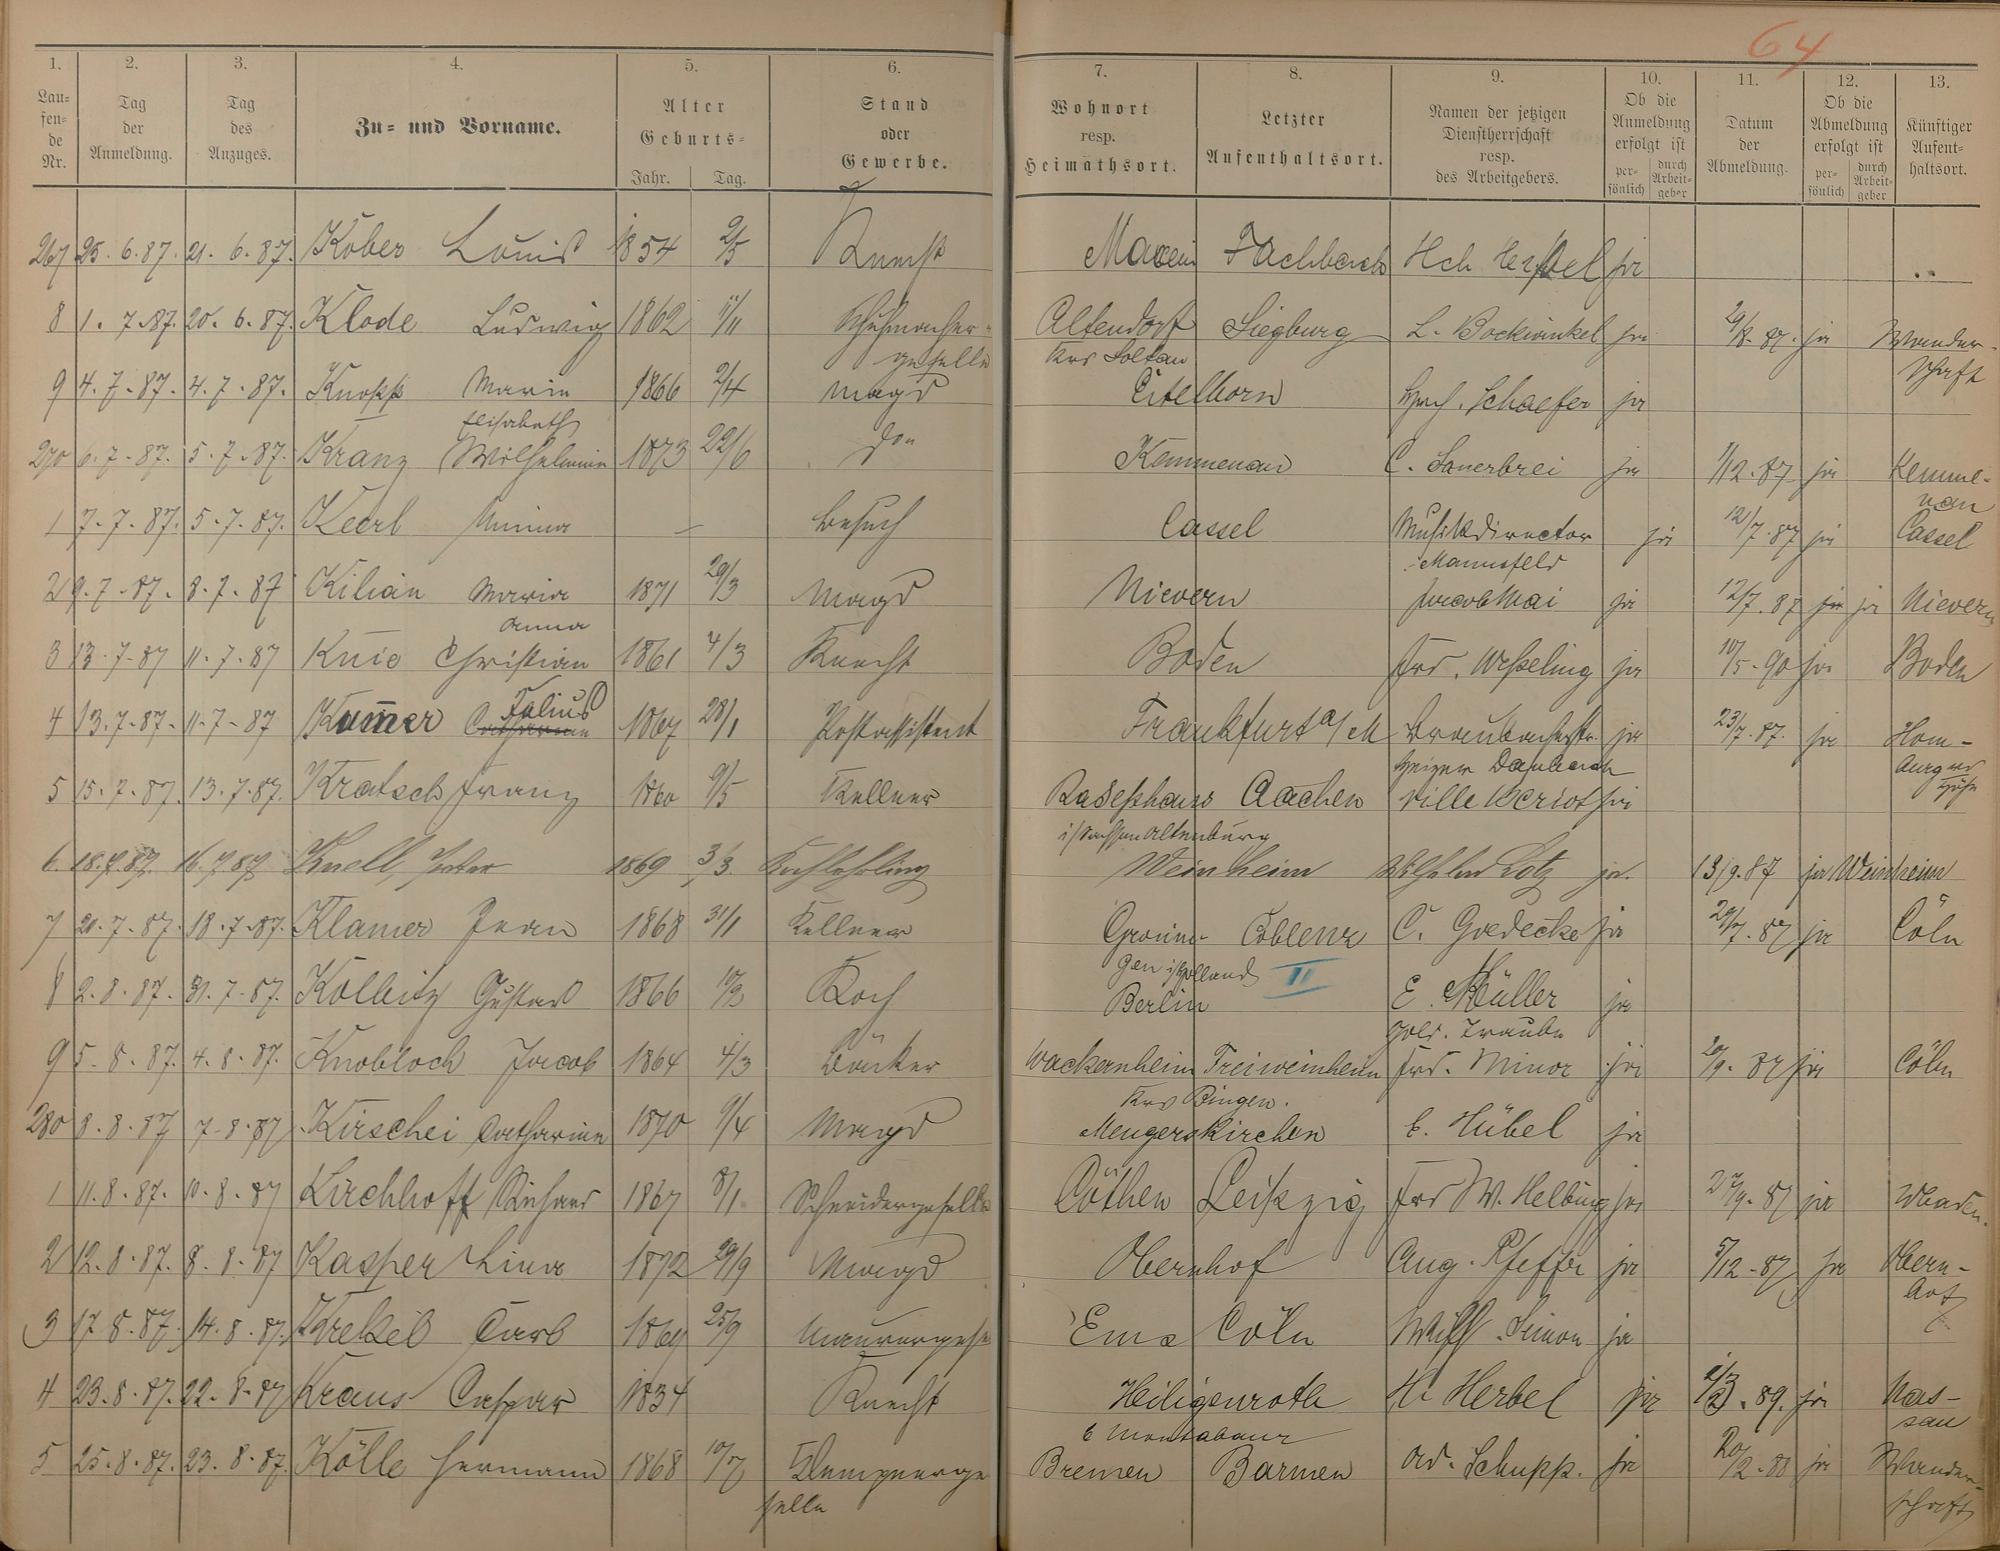 64
1. 2. 3. 4. 5. 6. 7. 8. 9. 10. 11. 12. 13.
Laufende Nr. Tag der Anmeldung. Tag des Anzuges. Zu- und Vorname. Alter Geburts- Jahr. Tag. Stand oder Gewerbe. Wohnort resp. Heimathsort. Letzter Aufenthaltsort. Namen der jetzigen Dienstherrschaft resp. des Arbeitgebers. Ob die Anmeldung erfolgt ist persönlich durch Arbeitgeber Datum der Abmeldung. Ob die Abmeldung erfolgt ist persönlich durch Arbeitgeber Künftiger Aufenthaltsort.
267 25. 6. 87. 21. 6. 87. Kober Louis 1854 2/5 Knecht Fachbach Hch ja
8 1. 7. 87. 20. 6. 87. Klode Ludwig 1862 1/11 Schuhmacher- Altendorf Siegburg L. Bockwinkel ja 29/8. 87. ja Wander-
geselle Krs Soltau schaft
9 4. 7. 87. 4. 7. 87. Knopp Maria 1866 2/4 Magd Eitelborn Schaefer ja
Elisabeth
270 6. 7. 87. 5. 7. 87. Kranz Wilhelmine 1873 22/6 do Kemmenau C. Sauerbrei ja 1/12. 87 ja Kemme-
nau
1 7. 7. 87. 5. 7. 87. Keerl Minna — Besuch Cassel Musikdirector ja 12/7. 87 ja Cassel
Mannsfeld
2 9. 7. 87. 8. 7. 87 Kilian Maria 1871 29/3 Magd Nievern Jacob Mai ja 12/7. 87 ja ja Nievern
Anna
3 13. 7. 87 11. 7. 87 Knie Christian 1861 4/3 Knecht Boden Frd. Weßeling ja 10/5. 90 ja Boden
4 13. 7. 87. 11. 7. 87 Kum̄er Julius 1867 28/1 Postassistent Frankfurt a/M Braubacherstr. ja 23/7. 87. ja Hom-
Heizer Daubach burg vd Höhe
5 15. 7. 87. 13. 7. 87. Kratsch Franz 1860 9/5 Kellner Aachen Ville Beriot ja
i/Sachsen Altenburg
6. 18. 7. 87. 16. 7. 87 Knell, Peter 1869 3/3. Kochlehrling Weinheim Wilhelm Lotz ja. 13/9. 87 ja Weinheim
7 20. 7. 87. 18. 7. 87. Klamer Jean 1868 31/1 Kellner Gronin- Coblenz C. Goedecke ja 29/7. 87 ja Cöln
gen i/Holland II
8 2. 8. 87. 31. 7. 87. Kolbitz Gustav 1866 10/2 Koch Berlin E. Müller ja
gold. Traube
9 5. 8. 87. 4. 8. 87. Knobloch Jacob 1864 4/3 Bäcker Wackernheim Freiweinheim Frd. Minor ja 20/9. 87 ja Cöln
Krs Bingen.
280 8. 8. 87 7. 8. 87 Kirschei Catharine 1870 9/4 Magd Mengerskirchen C. Hübel ja
1 11. 8. 87. 10. 8. 87 Kirchhoff Richard 1867 8/1 Schneidergeselle Cöthen Leipzig Frd W. Helbing ja 27/9. 87 ja
2 12. 8. 87. 8. 8. 87 Kasper Lina 1872 29/9 Magd Obernhof Aug. Pfeffer ja 5/12. 87 ja Obern-
hof
3 17. 8. 87. 14. 8. 87. Krekel Carl 1869 25/9 Maurergese Ems Cöln Wilh. Simon ja
4 23. 8. 87. 22. 8. 87 Kraus Caspar 1834 Knecht Heiligenroth H. Herbel ja 89. ja Nas-
b Montabaur sau
5 25. 8. 87. 23. 8. 87. Kölle Hermann 1868 10/7 Klempnerge Bremen Barmen Ad. Schupp. ja 20/2. 88 ja Wander-
selle schaft